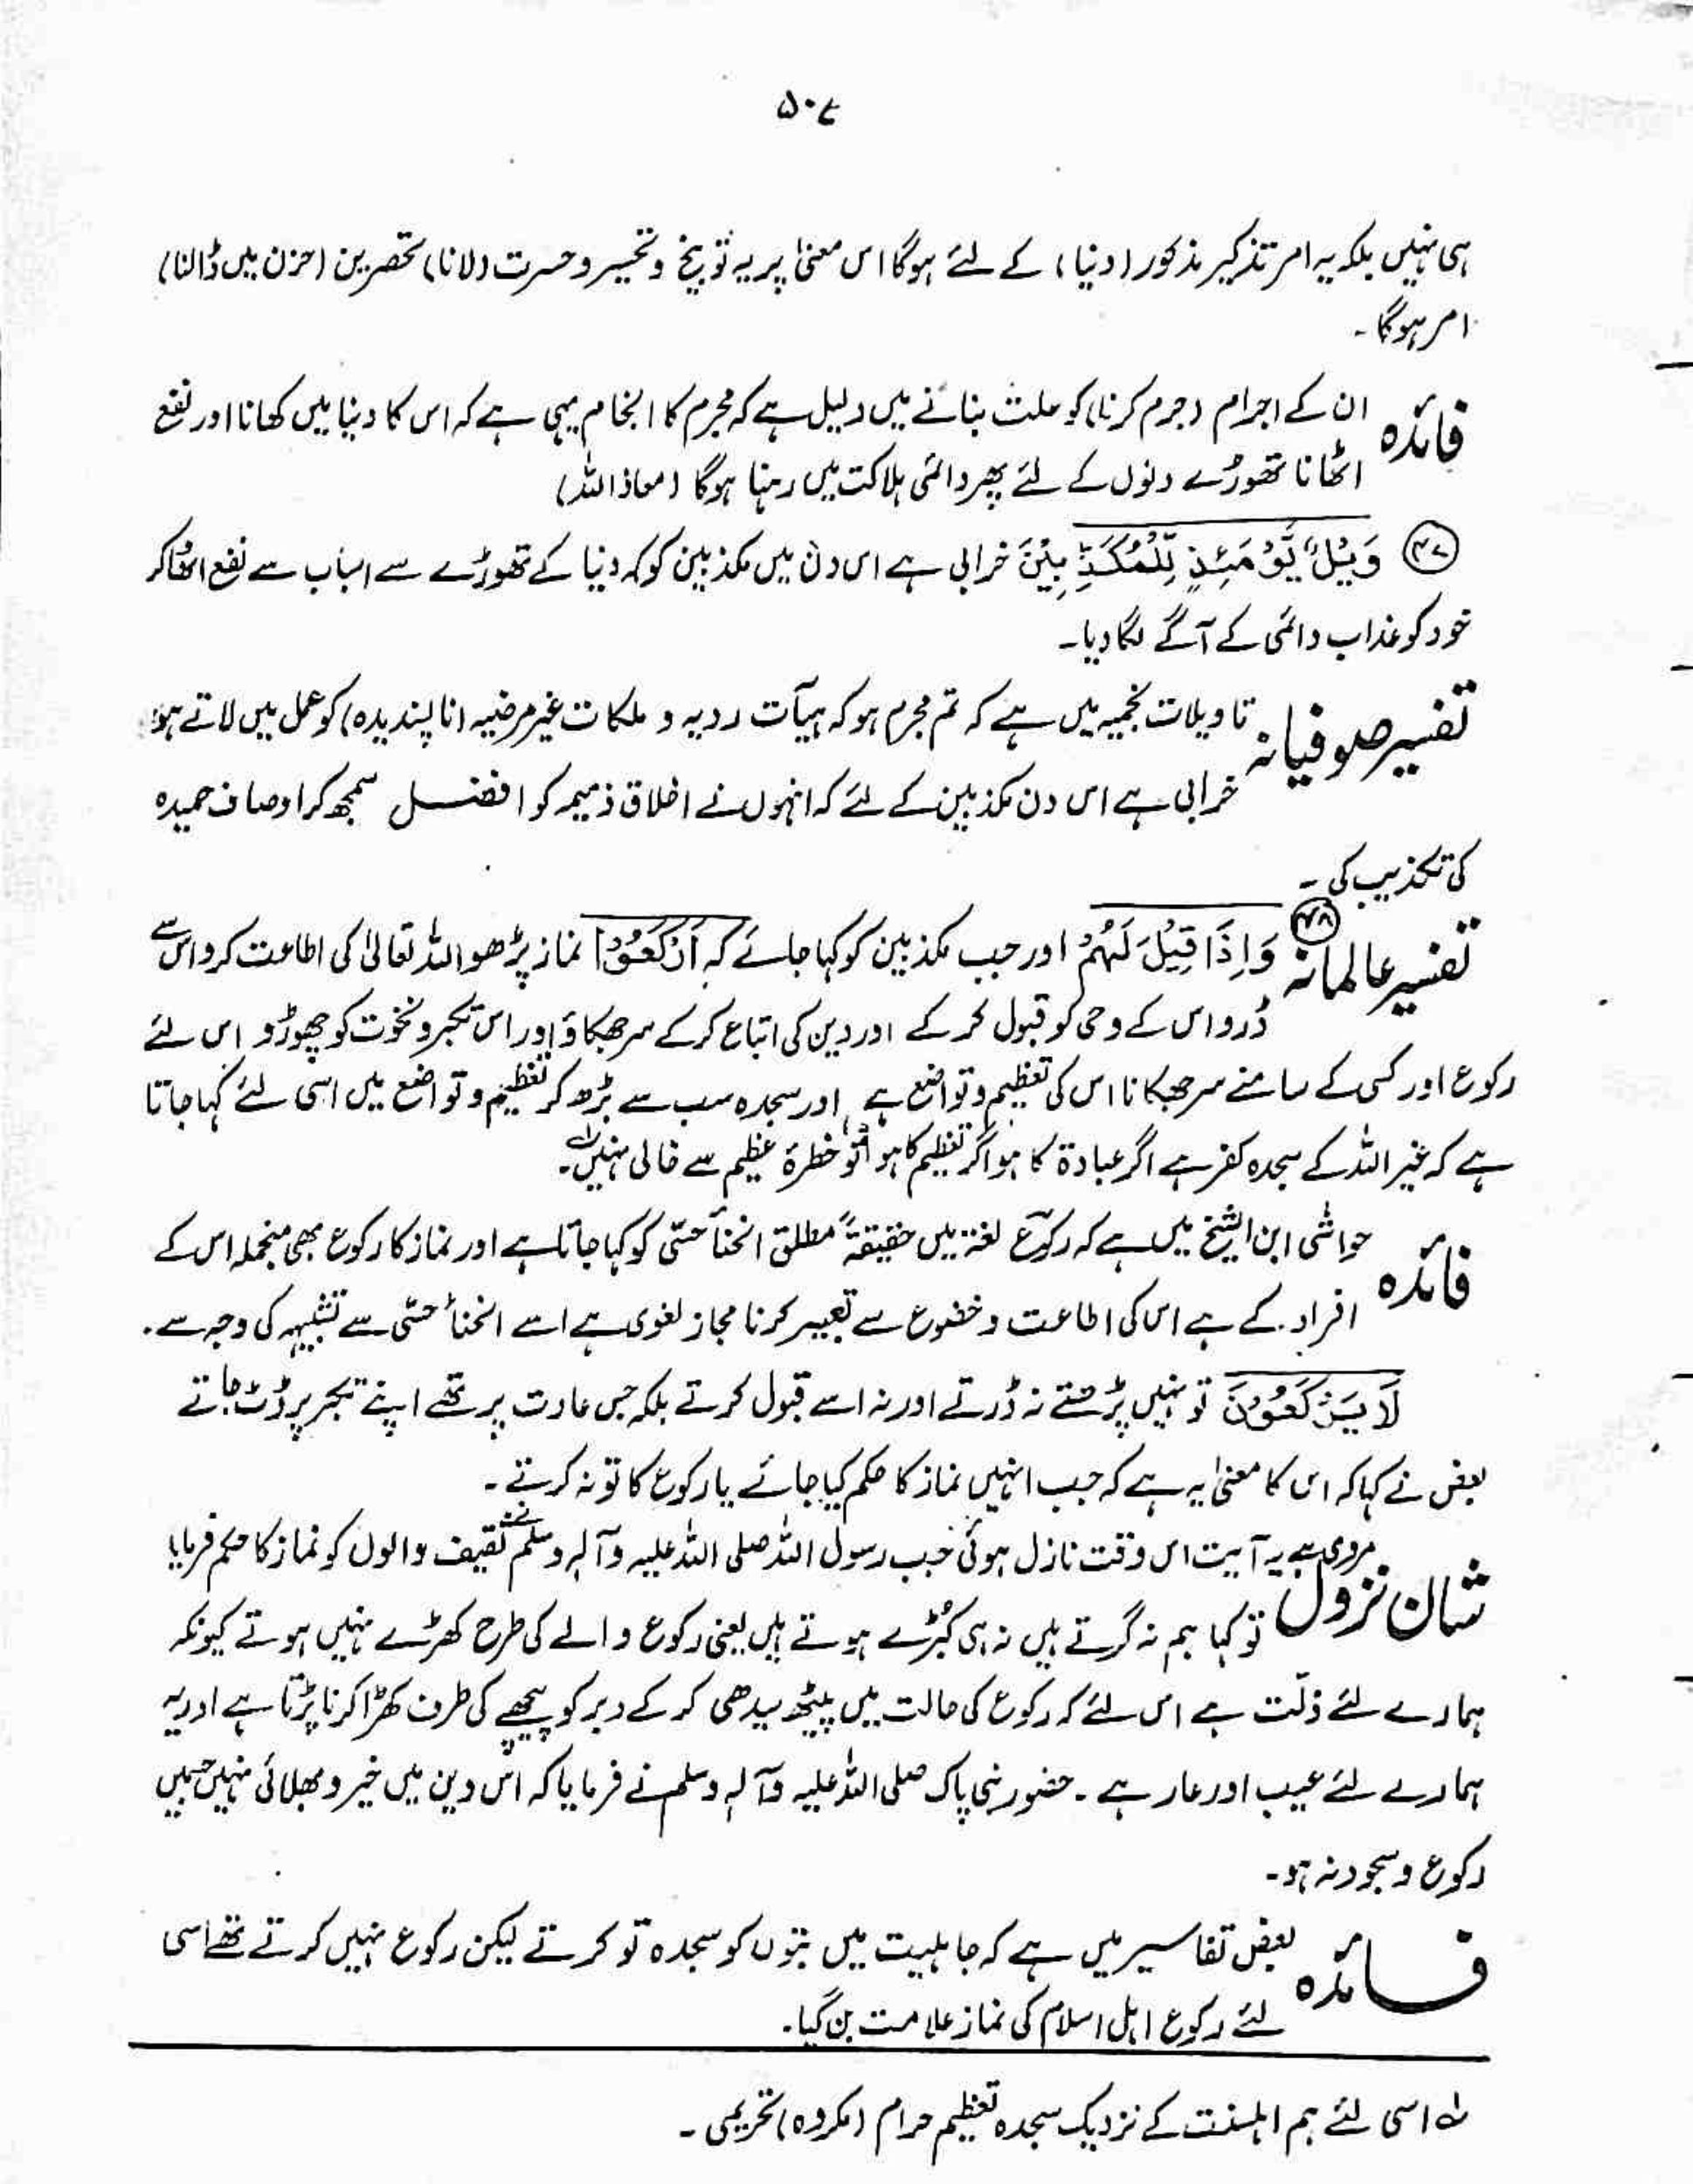 ۵۰۷
ہی نہیں بلکہ یہ امر تذکیر مذکور (دنیا) کے لئے ہوگا اس معنیٰ پر یہ توبیخ و تحسیر و حسرت دلانا) تحصرین (حزن میں ڈالنا)
امر ہوگا۔
فائدہ ان کے اجرام (جرم کرنا) کو علت بنانے میں دلیل ہے کہ مجرم کا انجام یہی ہے کہ اس کا دنیا میں کھانا اور نفع
اٹھانا تھوڑے دنوں کے لئے پھر دائمی ہلاکت میں رہنا ہوگا (معاذ اللہ)
۴۷ وَيْلٌ يَّوْمَئِذٍ لِّلْمُكَذِّبِيْنَ خرابی ہے اس دن میں مکذبین کو کہ دنیا کے تھوڑے سے اسباب سے نفع اٹھا کر
خود کو عذاب دائمی کے آگے لگا دیا۔
تفسیر صوفیانہ تاویلات نجمیہ میں ہے کہ تم مجرم ہو کہ ہیآت ردیہ و ملکات غیر مرضیہ (ناپسندیدہ) کو عمل میں لاتے ہو
خرابی ہے اس دن مکذبین کے لئے کہ انہوں نے اخلاق ذمیمہ کو افضل سمجھ کر اوصاف حمیدہ
کی تکذیب کی۔
تفسیر عالمانہ ۴۸ وَاِذَا قِيْلَ لَهُمْ اور جب مکذبین کو کہا جائے کہ اَرْكَعُوْا نماز پڑھو اللہ تعالیٰ کی اطاعت کرو اس سے
ڈرو اس کے وحی کو قبول کر کے اور دین کی اتباع کر کے سر جھکاؤ اور اس تکبر و نخوت کو چھوڑو اس لئے
رکوع اور کسی کے سامنے سر جھکانا اس کی تعظیم و تواضع ہے اور سجدہ سب سے بڑھ کر تعظیم و تواضع میں اسی لئے کہا جاتا
ہے کہ غیر اللہ کے سجدہ کفر ہے اگر عبادۃ کا ہو اگر تعظیم کا ہو تو خطرۂ عظیم سے خالی نہیں۔
فائدہ حواشی ابن الشیخ میں ہے کہ رکوع لغۃ میں حقیقۃً مطلق انحنأ حسّی کو کہا جاتا ہے اور نماز کا رکوع بھی منجملہ اس کے
افراد کے ہے اس کی اطاعت و خضوع سے تعبیر کرنا مجاز لغوی ہے اسے انحنأ حسّی سے تشبیہہ کی وجہ سے۔
لَا يَرْكَعُوْنَ تو نہیں پڑھتے نہ ڈرتے اور نہ اسے قبول کرتے بلکہ جس عادت پر تھے اپنے تکبر پر ڈٹ جاتے
بعض نے کہا کہ اس کا معنیٰ یہ ہے کہ جب انہیں نماز کا حکم کیا جائے یا رکوع کا تو نہ کرتے۔
شان نزول مروی ہے یہ آیت اس وقت نازل ہوئی جب رسول اللہ صلی اللہ علیہ وآلہ وسلم نے ثقیف والوں کو نماز کا حکم فرمایا
تو کہا ہم نہ گرتے ہیں نہ ہی کبڑے ہوتے ہیں یعنی رکوع والے کی طرح کھڑے نہیں ہوتے کیونکہ
ہمارے لئے ذلّت ہے اس لئے کہ رکوع کی حالت میں پیٹھ سیدھی کر کے دبر کو پیچھے کی طرف کھڑا کرنا پڑتا ہے اور یہ
ہمارے لئے عیب اور عار ہے۔ حضور نبی پاک صلی اللہ علیہ وآلہ وسلم نے فرمایا کہ اس دین میں خیر و بھلائی نہیں جسمیں
رکوع و سجود نہ ہو۔
فائدہ بعض تفاسیر میں ہے کہ جاہلیت میں بتوں کو سجدہ تو کرتے لیکن رکوع نہیں کرتے تھے اسی
لئے رکوع اہل اسلام کی نماز علامت بن گیا۔
ف اسی لئے ہم اہلسنت کے نزدیک سجدہ تعظیم حرام (مکروہ) تحریمی۔